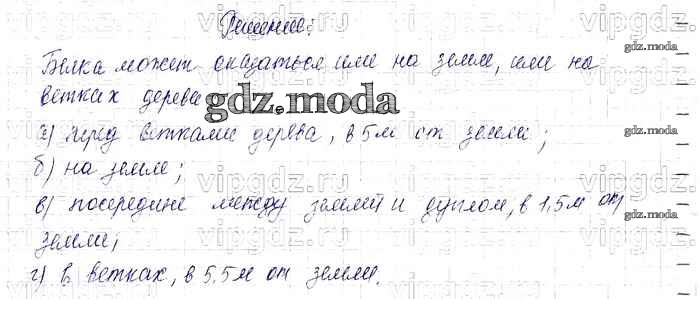 Решение:
Белка может оказаться или на земле, или на
ветках дерева
gdz.moda
а) перед ветками дерева, в 5м от земли;
б) на земле;
в) посередине между землей и дуплом, в 1,5м от
земли;
г) в ветках, в 5,5м от земли.
vipgdz.ru
vipgdz.ru
vipgdz.ru
vipgdz.ru
vipgdz.ru
vipgdz.ru
vipgdz.ru
vipgdz.ru
gdz.moda
gdz.moda
gdz.moda
gdz.moda